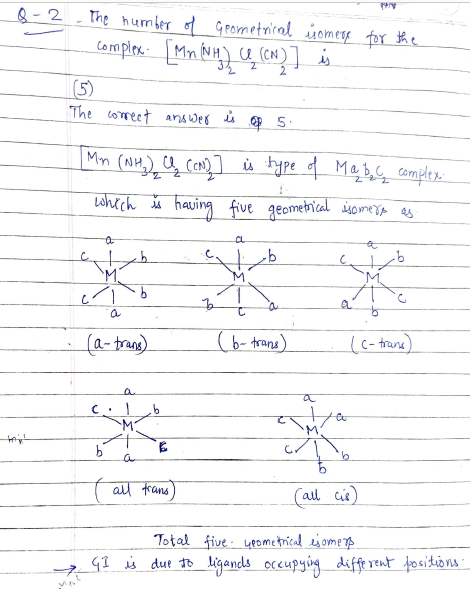 Q-2 - The number of Geometrical isomers for the
complex. [Mn(NH3)2 Cl2(CN)2] is
(5)
The correct answer is 5.
[Mn (NH3)2 Cl2 (CN)2] is type of Ma2b2c2 complex.
which is having five geometrical isomers as
a a a
c b c b c b
M M M
c b b a a c
a c b
(a-trans) (b-trans) (c-trans)
a a
c b c a
M M
b c c b
a b
(all trans) (all cis)
Total five geometrical isomers
→ GI is due to ligands occupying different positions.